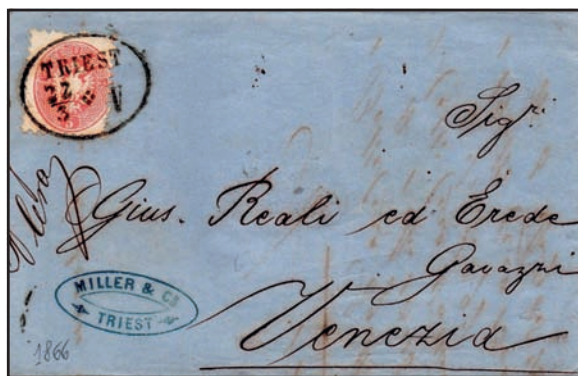 TRIEST
22
3
V
Sigr.
Gius. Reali ed Erede
Gavazzi
Venezia
MILLER & Co
TRIEST
1866